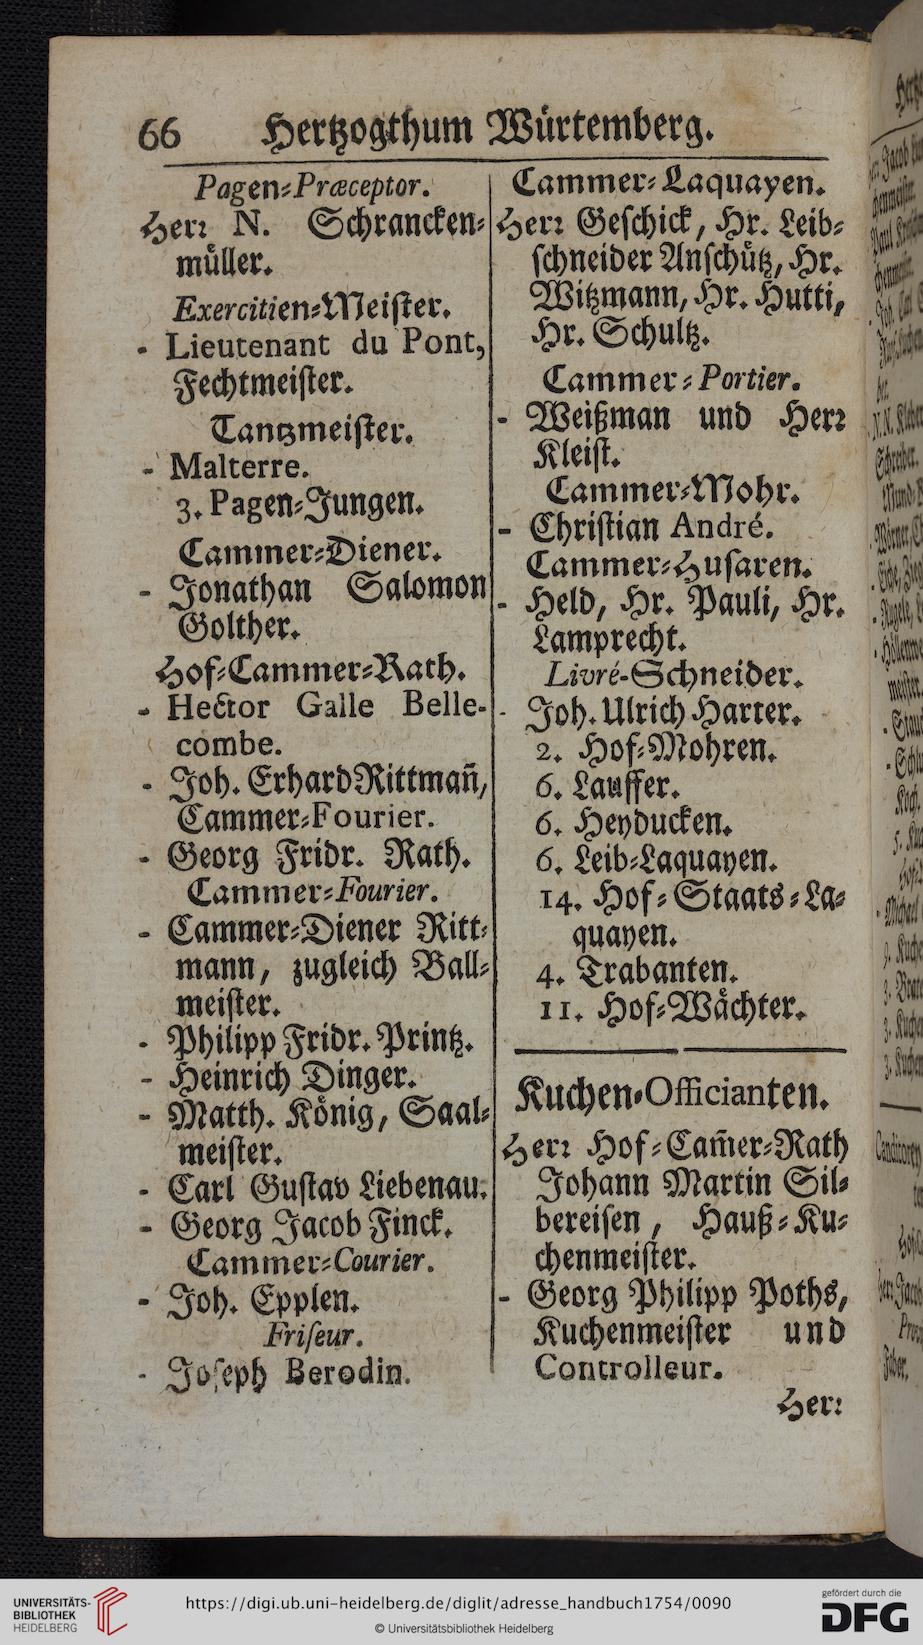 66 Hertzogthum Würtemberg.
Pagen-Præceptor.
Herr N. Schrancken-
müller.
Exercitien-Meister.
- Lieutenant du Pont,
Fechtmeister.
Tantzmeister.
- Malterre.
3. Pagen-Jungen.
Cammer-Diener.
- Jonathan Salomon
Golther.
Hof-Cammer-Rath.
- Hector Galle Belle-
combe.
- Joh. Erhard Rittmañ,
Cammer-Fourier.
- Georg Fridr. Rath.
Cammer-Fourier.
- Cammer-Diener Ritt-
mann, zugleich Ball-
meister.
- Philipp Fridr. Printz.
- Heinrich Dinger.
- Matth. König, Saal-
meister.
- Carl Gustav Liebenau.
- Georg Jacob Finck.
Cammer-Courier.
- Joh. Epplen.
Friseur.
- Joseph Berodin.
Cammer-Laquayen.
Herr Geschick, Hr. Leib-
schneider Anschütz, Hr.
Witzmann, Hr. Hutti,
Hr. Schultz.
Cammer-Portier.
- Weißman und Herr
Kleist.
Cammer-Mohr.
- Christian André.
Cammer-Husaren.
- Held, Hr. Pauli, Hr.
Lamprecht.
Livré-Schneider.
- Joh. Ulrich Harter.
2. Hof-Mohren.
6. Lauffer.
6. Heyducken.
6. Leib-Laquayen.
14. Hof-Staats-La-
quayen.
4. Trabanten.
11. Hof-Wächter.
Kuchen-Officianten.
Herr Hof-Cam̃er-Rath
Johann Martin Sil-
bereisen, Hauß-Ku-
chenmeister.
- Georg Philipp Poths,
Kuchenmeister und
Controlleur.
Herr
UNIVERSITÄTS-
BIBLIOTHEK
HEIDELBERG
https://digi.ub.uni-heidelberg.de/diglit/adresse_handbuch1754/0090
© Universitätsbibliothek Heidelberg
gefördert durch die
DFG